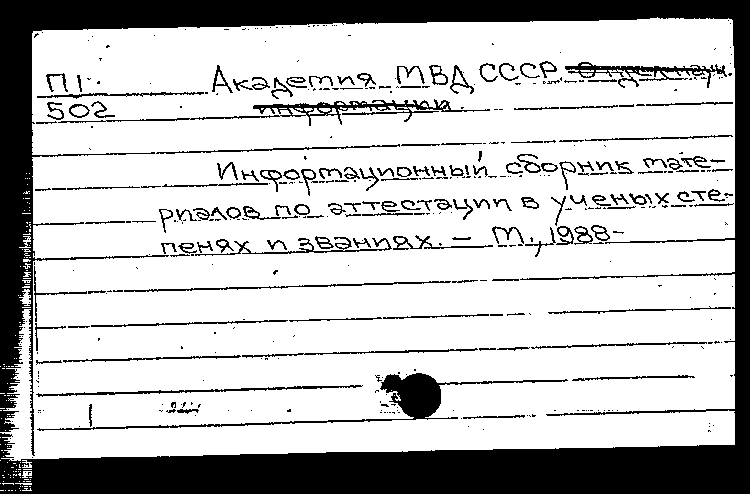 П1 Академия МВД СССР. Отдел науч.
502 информации.
Информационный сборник мате-
риалов по аттестации в ученых сте-
пенях и званиях. – М., 1988-